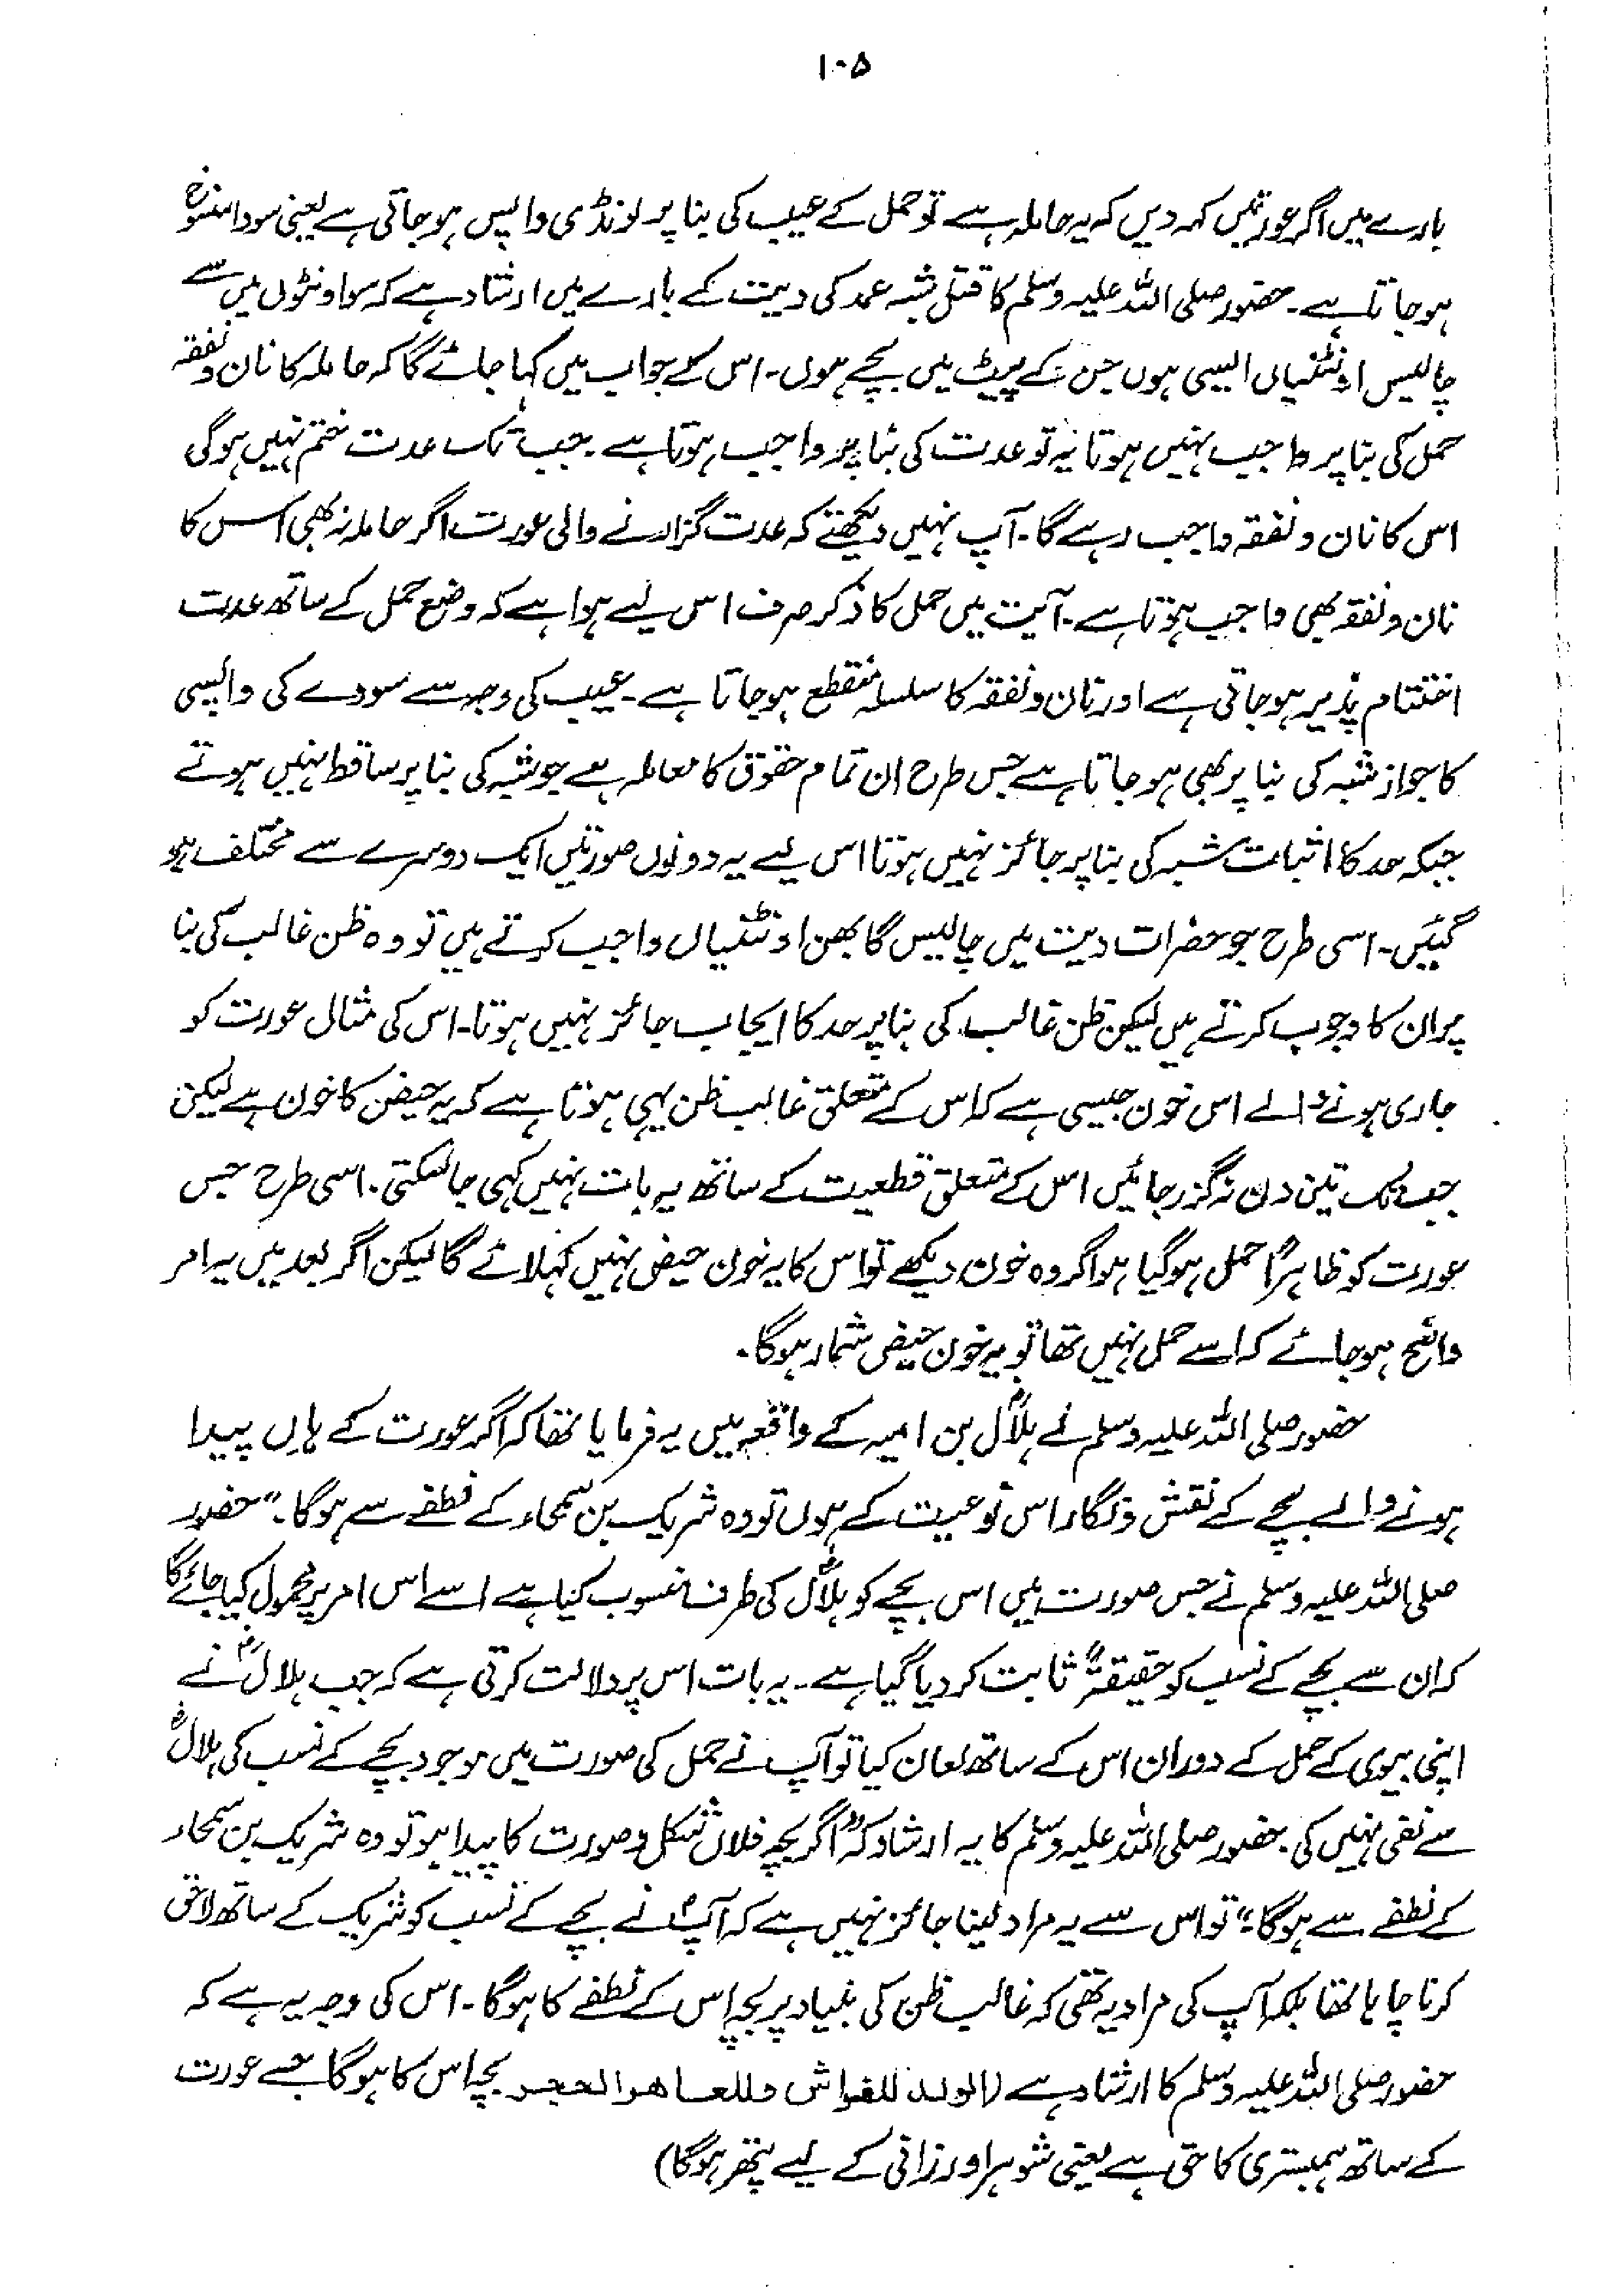 ۱۰۵
بارے میں اگر عورتیں کہہ دیں کہ یہ حاملہ ہے تو حمل کے عیب کی بنا پر لونڈی واپس ہو جاتی ہے یعنی سودا منسوخ
ہو جاتا ہے۔ حضور صلی اللہ علیہ وسلم کا قتل شبہ عمد کی دیت کے بارے میں ارشاد ہے کہ سو اونٹوں میں سے
چالیس اونٹنیاں ایسی ہوں جن کے پیٹ میں بچے ہوں۔ اس کے جواب میں کہا جائے گا کہ حاملہ کا نان و نفقہ
حمل کی بنا پر واجب نہیں ہوتا یہ تو عدت کی بنا پر واجب ہوتا ہے۔ جب تک عدت ختم نہیں ہوگی
اس کا نان و نفقہ واجب رہے گا۔ آپ نہیں دیکھتے کہ عدت گزارنے والی عورت اگر حاملہ نہ بھی اس کا
نان و نفقہ بھی واجب ہوتا ہے۔ آیت میں حمل کا ذکر صرف اس لیے ہوا ہے کہ وضع حمل کے ساتھ عدت
اختتام پذیر ہو جاتی ہے اور نان و نفقہ کا سلسلہ منقطع ہو جاتا ہے۔ عیب کی وجہ سے سودے کی واپسی
کا جواز شبہ کی بنا پر بھی ہو جاتا ہے جس طرح ان تمام حقوق کا معاملہ ہے جو شبہ کی بنا پر ساقط نہیں ہوتے
جبکہ حد کا اثبات شبہ کی بنا پر جائز نہیں ہوتا اس لیے یہ دونوں صورتیں ایک دوسرے سے مختلف ہو
گئیں۔ اسی طرح جو حضرات دیت میں چالیس گابھن اونٹنیاں واجب کرتے ہیں تو وہ ظن غالب کی بنا
پر ان کا وجوب کرتے ہیں لیکن ظن غالب کی بنا پر حد کا ایجاب جائز نہیں ہوتا۔ اس کی مثال عورت کو
جاری ہونے والے اس خون جیسی ہے کہ اس کے متعلق غالب ظن یہی ہوتا ہے کہ یہ حیض کا خون ہے لیکن
جب تک تین دن نہ گزر جائیں اس کے متعلق قطعیت کے ساتھ یہ بات نہیں کہی جا سکتی۔ اسی طرح جس
عورت کو ظاہراً حمل ہو گیا ہو اگر وہ خون دیکھے تو اس کا یہ خون حیض نہیں کہلائے گا لیکن اگر بعد میں یہ امر
واضح ہو جائے کہ اسے حمل نہیں تھا تو یہ خون حیض شمار ہوگا۔
حضور صلی اللہ علیہ وسلم نے ہلالؓ بن امیہ کے واقعہ میں یہ فرمایا تھا کہ اگر عورت کے ہاں پیدا
ہونے والے بچے کے نقش و نگار اس نوعیت کے ہوں تو وہ شریک بن سمحاء کے نطفے سے ہوگا۔" حضور
صلی اللہ علیہ وسلم نے جس صورت میں اس بچے کو ہلالؓ کی طرف منسوب کیا ہے اسے اس امر پر محمول کیا جائے گا
کہ ان سے بچے کے نسب کو حقیقۃً ثابت کر دیا گیا ہے۔ یہ بات اس پر دلالت کرتی ہے کہ جب ہلالؓ نے
اپنی بیوی کے حمل کے دوران اس کے ساتھ لعان کیا تو آپ نے حمل کی صورت میں موجود بچے کے نسب کی ہلالؓ
سے نفی نہیں کی۔ حضور صلی اللہ علیہ وسلم کا یہ ارشاد کہ "اگر بچہ فلاں شکل و صورت کا پیدا ہو تو وہ شریک بن سمحاء
کے نطفے سے ہوگا۔" تو اس سے یہ مراد لینا جائز نہیں ہے کہ آپؐ نے بچے کے نسب کو شریک کے ساتھ لاحق
کرنا چاہا تھا بلکہ آپ کی مراد یہ تھی کہ غالب ظن کی بنیاد پر بچہ اس کے نطفے کا ہوگا۔ اس کی وجہ یہ ہے کہ
حضور صلی اللہ علیہ وسلم کا ارشاد ہے (الولد للفراش وللعاهر الحجر بچہ اس کا ہوگا جسے عورت
کے ساتھ ہمبستری کا حق ہے یعنی شوہر اور زانی کے لیے پتھر ہوگا)